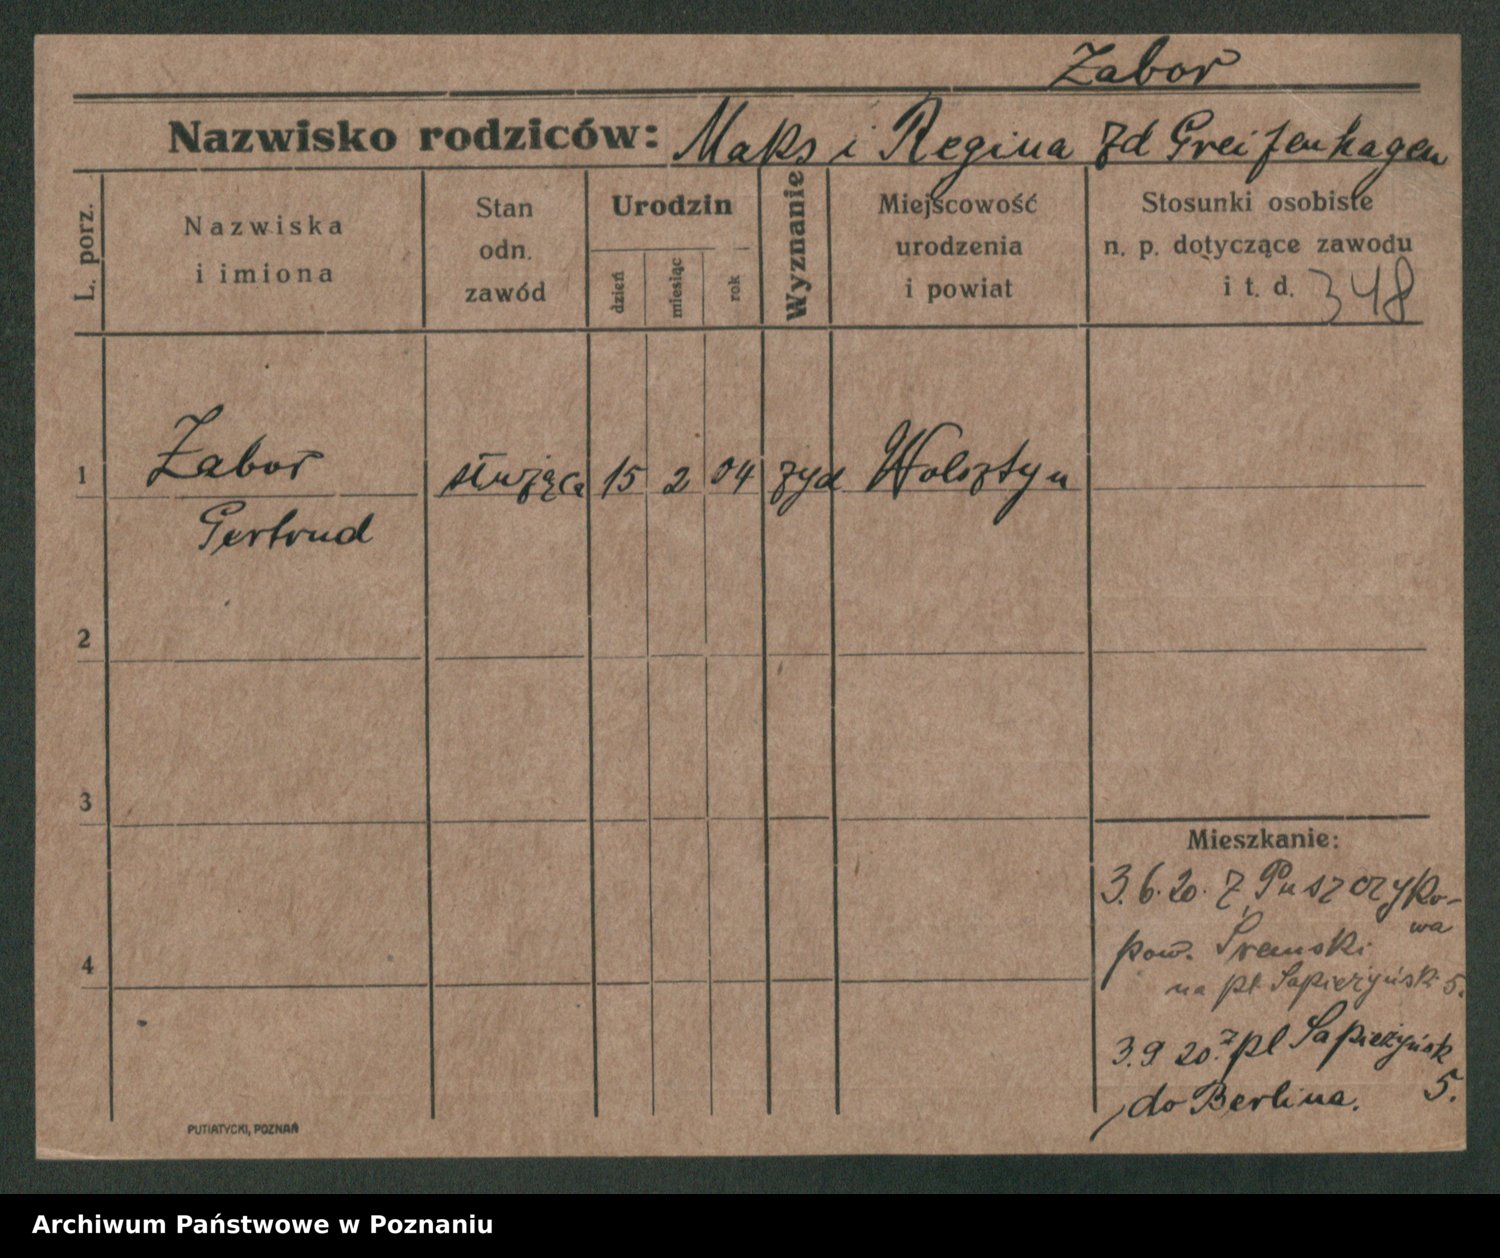 Zabor
Nazwisko rodziców: Maks i Regina zd Greifenhagen
L. porz.
Nazwiska
i imiona
Stan
odn.
zawód
Urodzin
dzień
miesiąc
rok
Wyznanie
Miejscowość
urodzenia
i powiat
Stosunki osobiste
n. p. dotyczące zawodu
i t. d. 348
1 Zabor służąca 15 2 04 żyd Wolsztyn
Gertrud
2
3
4
Mieszkanie:
3.6.20. z Puszczyko-
wa
pow. Śremski
na pl Sapieżyński 5.
3.9 20. z pl Sapieżyńsk
5.
do Berlina.
PUTIATYCKI, POZNAŃ
Archiwum Państwowe w Poznaniu